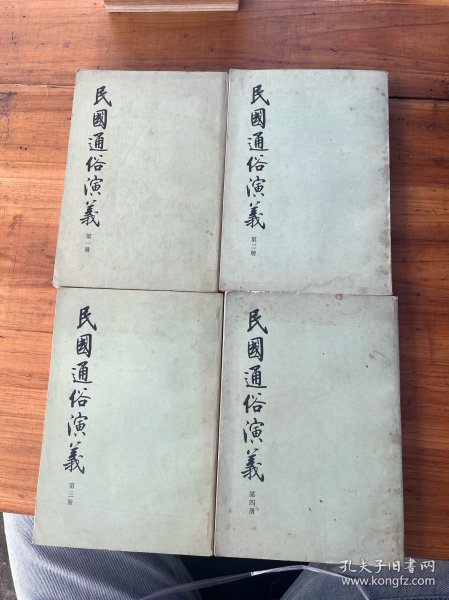 民國通俗演義
第一册
民國通俗演義
第二册
民國通俗演義
第三册
民國通俗演義
第四册
孔夫子旧书网
www.kongfz.com